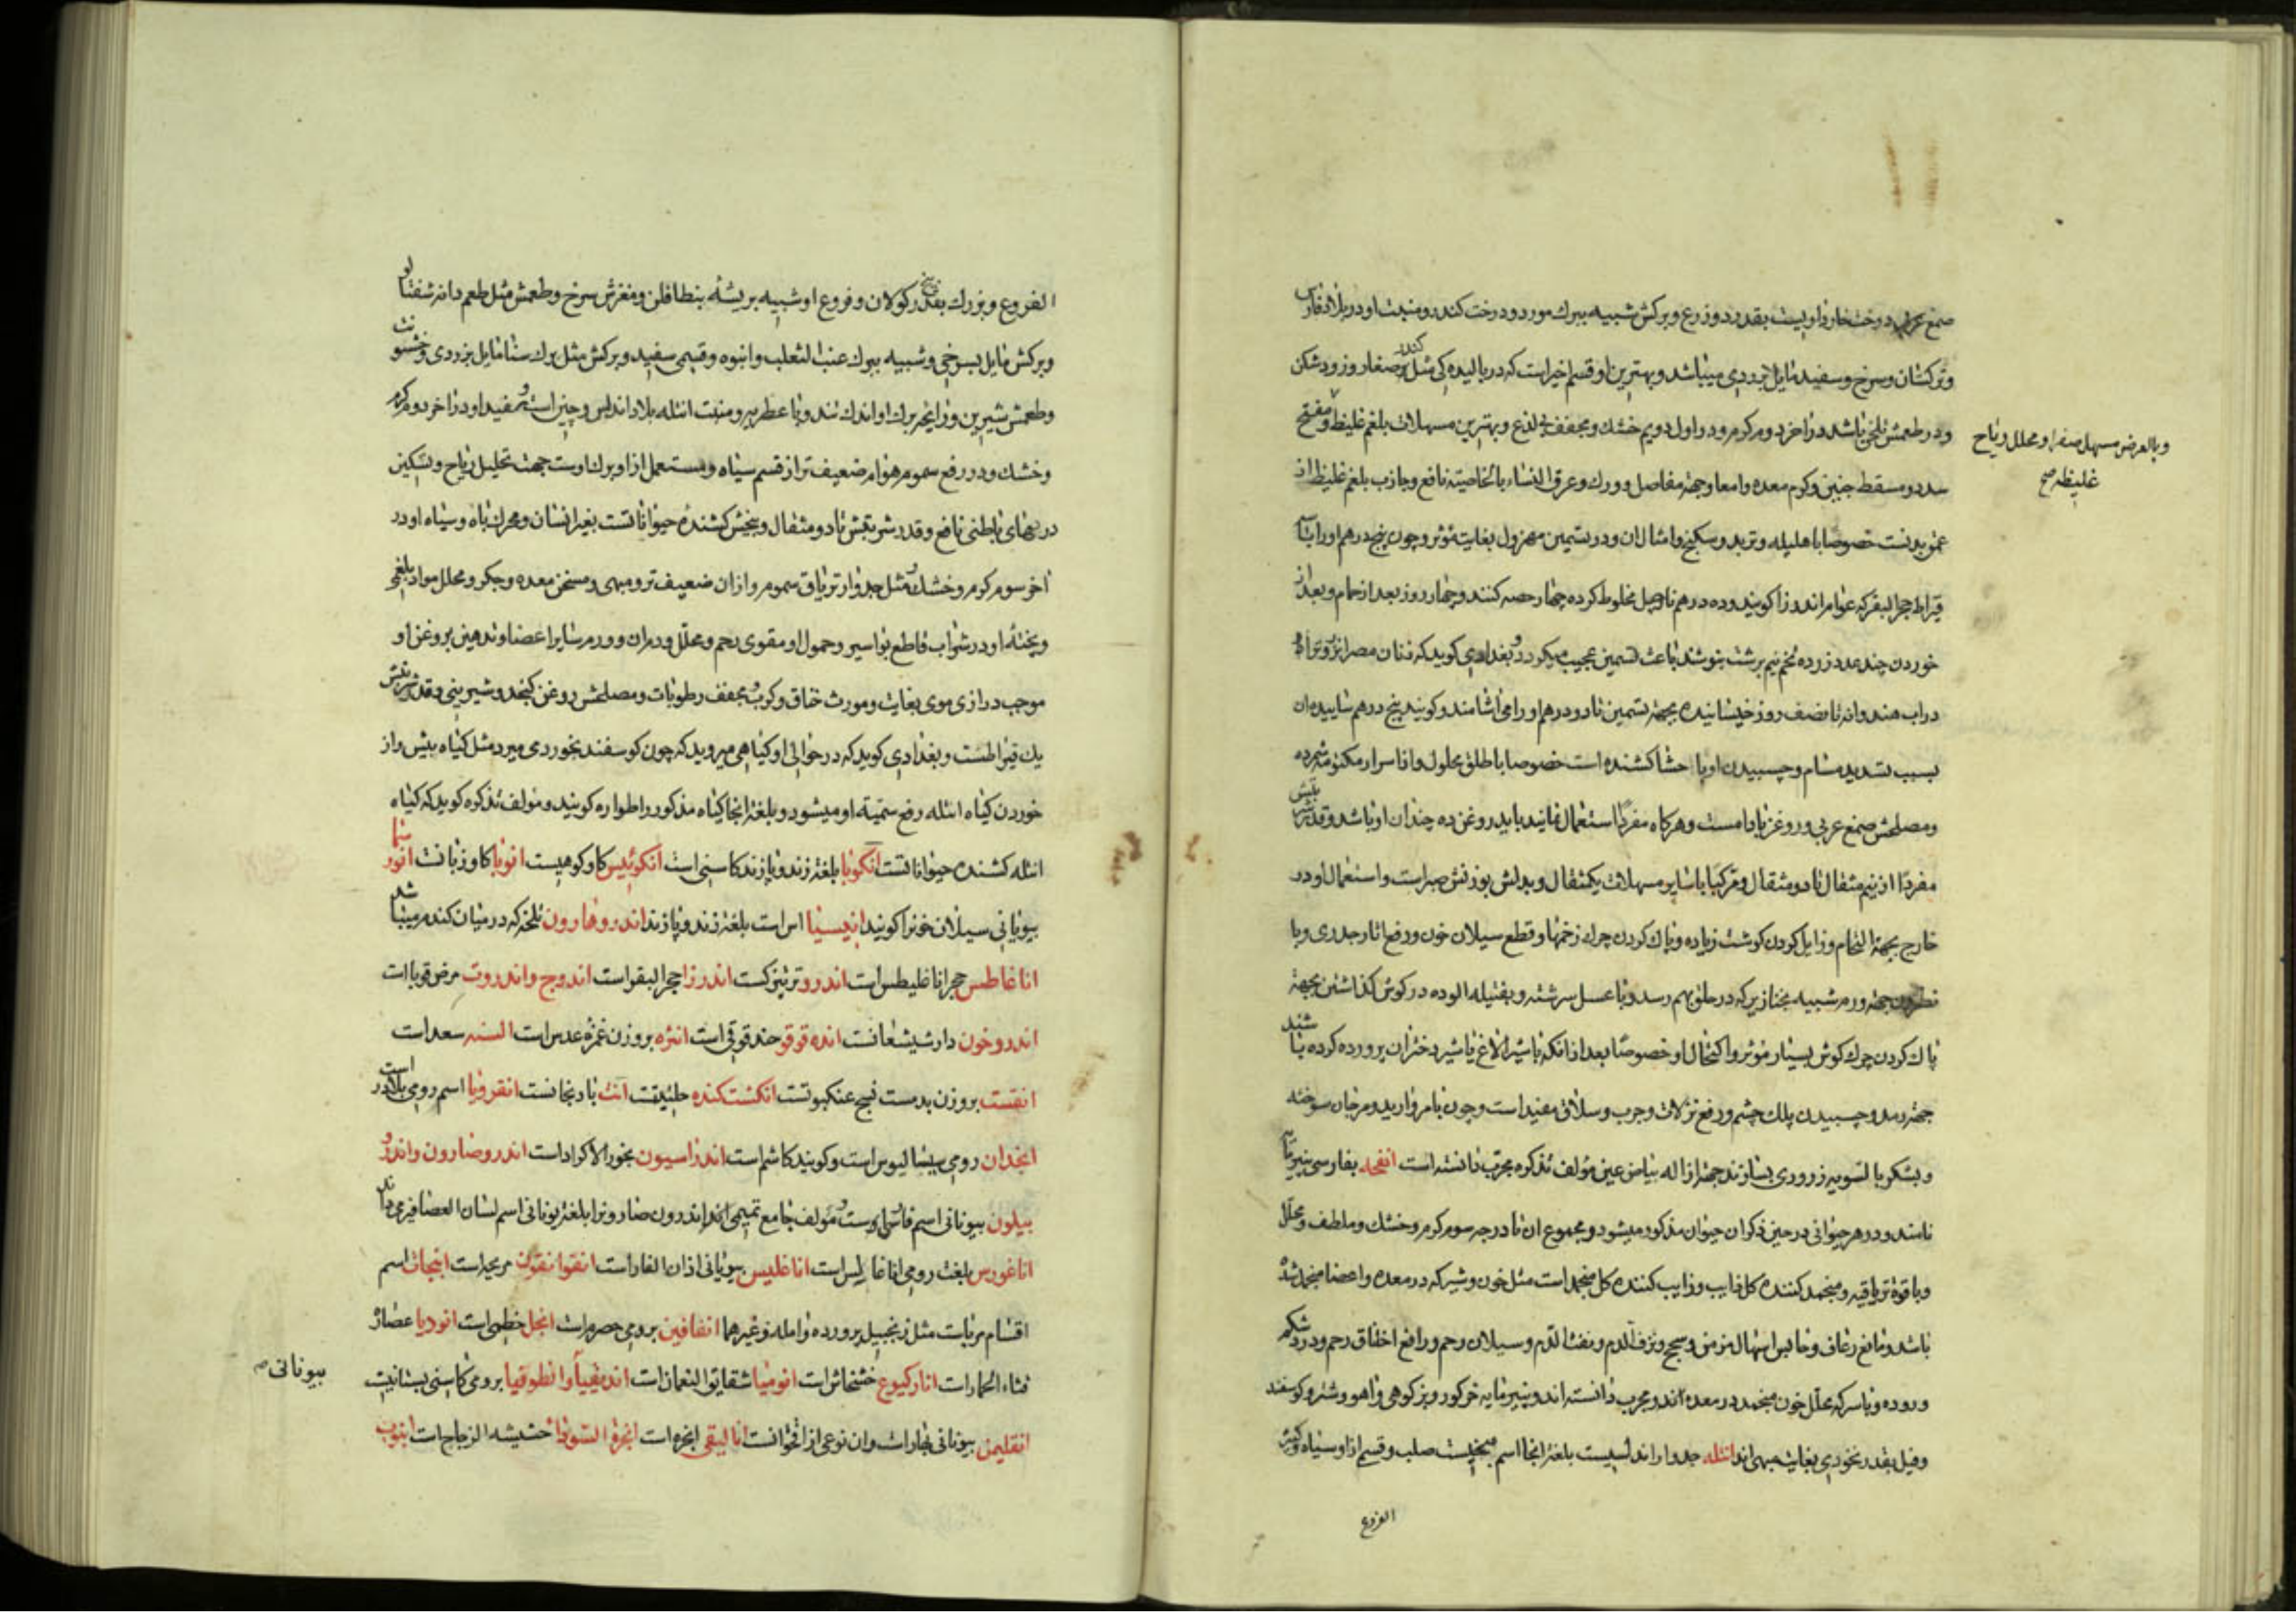 صمغ عربی درخت خارداریست بقدر دو ذرع و برکش شبیه ببرک مورد و درخت کندر و منبت او در بلاد فارس
و ترکستان و سرخ و سفید مایل بزردی میباشد و بهترین او قسم اخیر است که در بالیدگی مثل کندر صغار و زود شکن
و در طعمش تلخی باشد در آخر دوم کرم و در اول دویم خشک و مجفف بی لذع و بهترین مسهلات بلغم غلیظ و مفتح
و بالعرض مسهل صفرا و محلل ریاح
غلیظه صح
سدد و مسقط جنین و کرم معده و امعا و جهة مفاصل و ورک و عرق النساء بالخاصیة نافع و جاذب بلغم غلیظ از
عمق بدنست خصوصا با هلیله و تربد و سکبینج و امثال ان و در تسمین مهزول بغایت مؤثر و چون پنج درهم او را با
قیراط حجر البقر که عوام اندرزا کویند و ده درهم نارجیل مخلوط کرده چهار حصه کنند و چهار روز بعد از حمام و بعد از
خوردن چند عدد زرده تخم نیم برشت بنوشند باعث تسمین عجیب میکردد و بغدادی کوید که زنان مصر
در اب هندوانه تا نصف روز خیسانیده بجهة تسمین تا دو درهم او را می اشامند و کویند پنج درهم ساییده ان
بسبب تسدید مسام و چسبیدن او با حشا کشنده است خصوصا با طلق محلول و از اسرار مکنونه شمرده
و مصلحش صمغ عربی و روغن بادامست و هرکاه مفردا استعمال نمایند باید روغن ده چندان او باشد و قدر شربتش
مفردا از نیم مثقال تا دو مثقال و مرکبا با سایر مسهلات یکمثقال و بدلش بوزنش صبر است و استعمال او در
خارج بجهة التحام و زایل کردن کوشت زیاده و پاک کردن چرک زخمها و قطع سیلان خون و رفع اثار جدری و با
نطرون جهة ورم شبیه بخنازیر که در حلق بهم رسد و با عسل سرشته و بفتیله الوده در کوش کذاشتن بجهة
پاک کردن چرک کوش بسیار مؤثر و اکتحال او خصوصا بعد از انکه با شیر الاغ یا شیر دختران پرورده کرده باشند
جهة رمد و چسبیدن پلک چشم و رفع نزلات و جرب و سلاق مفید است و چون با مروارید و مرجان سوخته
و بشکر بالسویه زروری بسازند جهة ازاله بیاض عین مؤلف تذکره مجرب دانسته است انفحه بفارسی پنیرمایه
نامند و در هر حیوانی در حین ذکر ان حیوان مذکور میشود و مجموع ان تا درجه سوم کرم و خشک و ملطف و محلل
و با قوة تریاقیه و منجمد کننده کل ذایب و ذایب کننده کل منجمد است مثل خون و شیر که در معده و اعضا منجمد شده
باشد و مانع رعاف و حابس اسهال مزمن و سحج و نزف الدم و نفث الدم و سیلان رحم و رافع اختناق رحم و درد شکم
و روده و با سرکه محلل خون منجمد در معده اند و مجرب دانسته اند و پنیرمایه خرکور و بز کوهی و اهو و شتر و کوسفند
و فیل بقدر نخودی بغایت مبهی اند انتله جدوار اندلسیست بلغة انجا اسم بیخیست صلب و قسمی از او سیاه و کثیر
الفروع
الفروع و بزرک بقدر بیخ کولان و فروع او شبیه بریشه بنطافلن و مغزش سرخ و طعمش مثل طعم دانه شفتالو
و برکش مایل بسرخی و شبیه ببرک عنب الثعلب و انبوه و قسمی سفید و برکش مثل برک سنا مایل بزردی و خشونت
و طعمش شیرین و رایحه برک او اندک تند و با عطریه و منبت انتله بلاد اندلس و چین است و سفید او در آخر دوم کرم
و خشک و در رفع سموم هوام ضعیف تر از قسم سیاه و مستعمل از او برک اوست جهت تحلیل ریاح و تسکین
دردهای باطنی نافع و قدر شربتش تا دو مثقال و بیخش کشنده حیواناتست بغیر انسان و محرک باه و سیاه او در
آخر سوم کرم و خشک و مثل جدوار تریاق سموم و از ان ضعیف تر و مبهی و مسخن معده و جکر و محلل مواد بلغمی
و پخته او در شراب قاطع بواسیر و حمول او مقوی رحم و محلل و درمان و ورم سایر اعضا و تدهین بروغن او
موجب درازی موی بغایت و مورث خناق و کرب و مجفف رطوبات و مصلحش روغن کنجد و شیرینی و قدر شربتش
یک قیراطست و بغدادی کوید که در حوالی او کیاهی میروید که چون کوسفند بخورد می میرد مثل کیاه بیش و از
خوردن کیاه انتله رفع سمیة او میشود و بلغة انجا کیاه مذکور را طواره کویند و مؤلف تذکره کوید که کیاه
انتله کشنده حیواناتست انکوبا بلغة زند و پازند کاسنی است انکوئیس کاو کوهیست انوبا کاوزبانست انورسما
بیونانی سیلان خونرا کویند انیسیا اس است بلغة زند و پازند اندروهارون تلخه که در میان کندم میباشد
اناغاطس حجر اناغلیطس است اندرو ترتیزکست اندرزا حجر البقر است اندوج و اندروت مرض قوباات
اندروخون دارشیشعانست انده قوقو حندقوقی است انتزه بروزن غمزه عدس است السنه سعد است
انفست بروزن بدمست نسج عنکبوتست انکشت کنده حلتیتست انت بادنجانست انقرونیا اسم رومی بلادر است
انجدان رومی سیسالیوس است و کویند کاشم است اندراسیون بخور الاکراد است اندروضارون و اندرو
بیلون بیونانی اسم فاس است و مؤلف جامع تمیمی اندروصارونرا بلغة یونانی اسم لسان العصافیر میداند
اناغورس بلغت رومی اناغالیس است اناغلیس بیونانی اذان الفار است انقوانقون مریحه است انبجات اسم
اقسام مربات مثل زنجبیل پرورده و امله و غیرهما انفافین برومی حصرم است انجل خطمی است انودیا عصاره
قثاء الحمار است انارکیوع خشخاش است انومیا شقایق النعمان است اندیقیا و انطوقیا برومی کاسنی بستانیست
بیونانی صح
انقلیمن بیونانی بهار است و ان نوعی از اقحوانست انالیقی انجره است انجرة السودا حشیشه الزجاج است انبوب